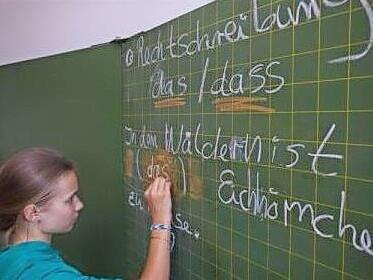 Rechtschreibung
das / dass
In den Wäldern ist
(das) Eichhörnche
zu